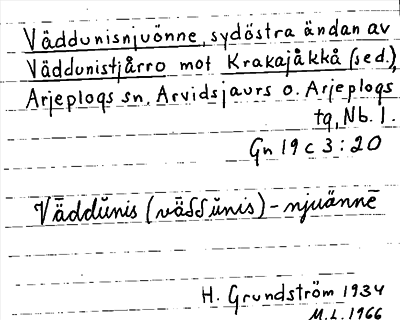 Väddunisnjuönne, sydöstra ändan av
Väddunistjårro mot Krakajåkkå (sed.),
Arjeplogs sn, Arvidsjaurs o. Arjeplogs
tg, Nb. l.
Gn 19 c 3:20
Väddŭnis (väδδŭnis)-njuännē
H. Grundström 1934
M.L. 1966